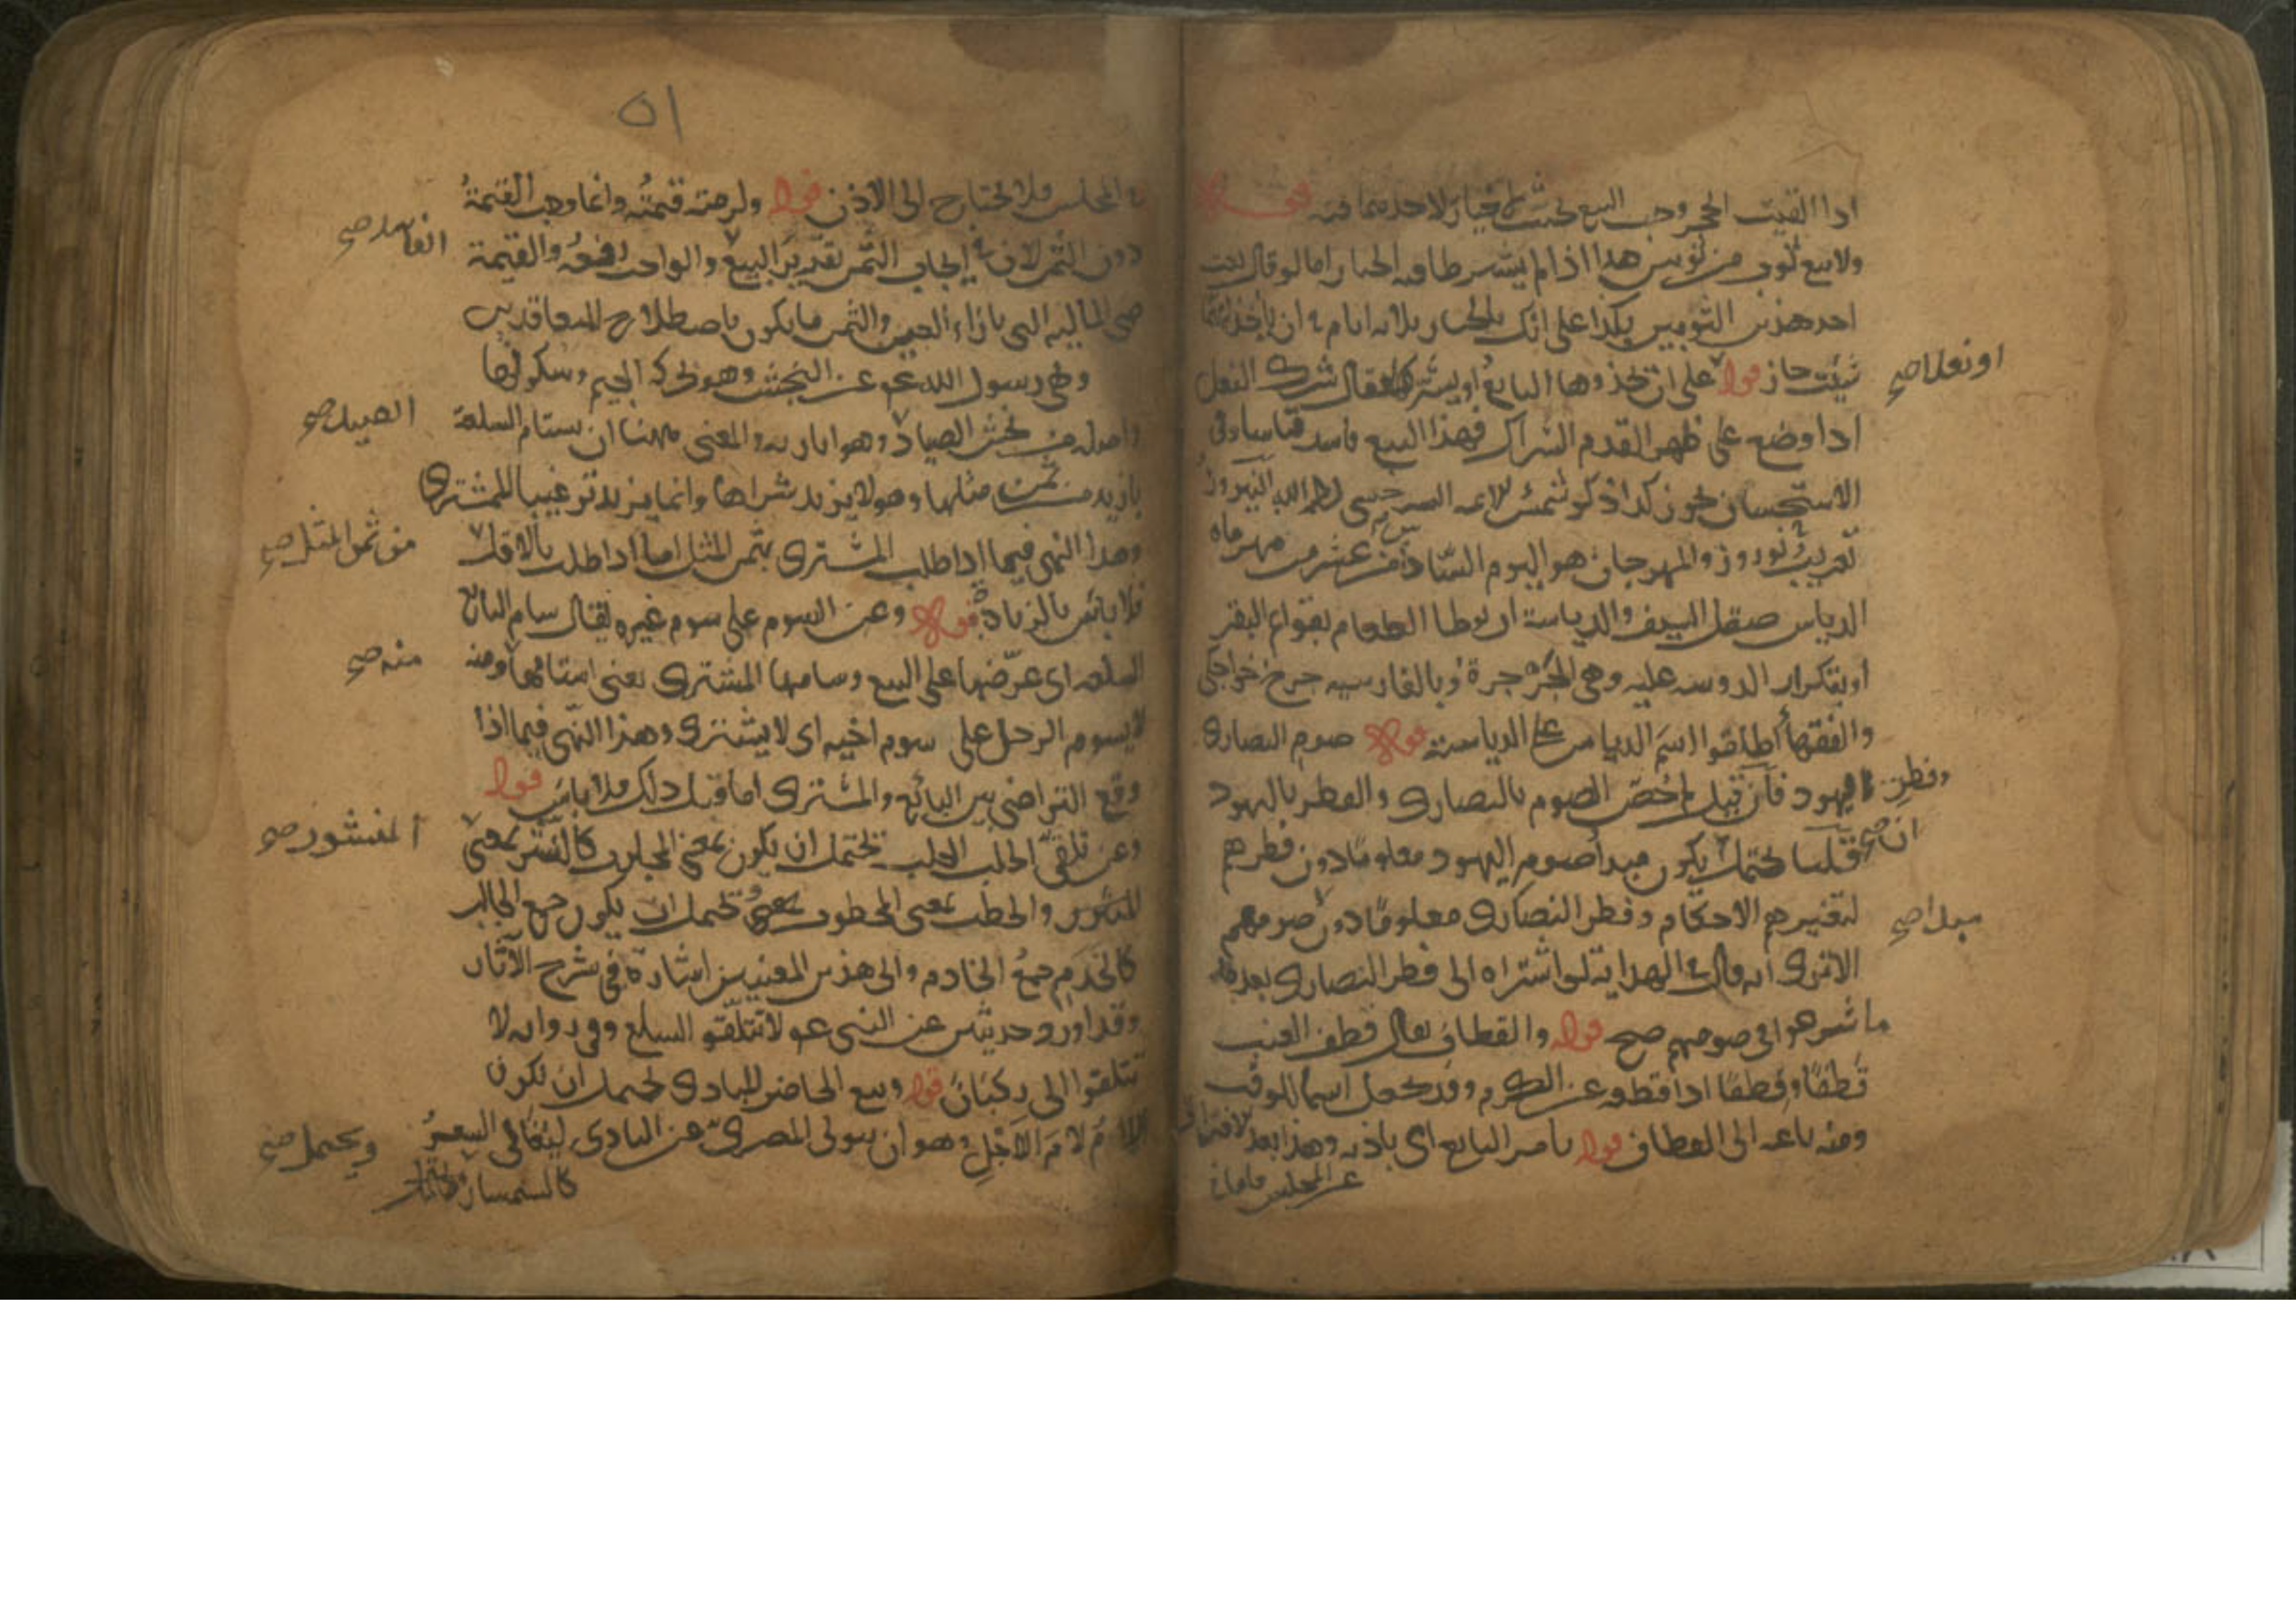 اذا القيت الحجر وجب البيع بحيث لا خيار لاحد منا فيه قوله
ولا بيع ثوب من ثوبين هذا اذا لم يشترطا فيه الخيار اما لو قال بعت
احد هذين الثوبين بكذا على انك بالخيار ثلاثة ايام في ان ياخذ ايهما
شئت جاز قوله على ان يحذوها البايع او يشركها يقال شرك النعل
او نعلا صح
اذا وضع على ظهر القدم الشراك فهذا البيع فاسد قياسا وفي
الاستحسان يجوز كذا ذكر شمس الايمة السرخسي رحمه الله النيروز
تعريب نوروز والمهرجان هو اليوم السادس عشر من مهرماه
الدياس صقل السيف والدياسة ان يوطا الطعام بقوائم البقر
او بتكرار الدوسة عليه وهي الجرجرة وبالفارسيه
والفقهاء اطلقوا اسم الدياس على الدياسة قوله صوم النصارى
وفطر اليهود فان قيل لم خص الصوم بالنصارى والفطر باليهود
ان صح
قلنا يحتمل يكون مبدأ صوم اليهود معلوما دون فطرهم
لتغييرهم الاحكام وفطر النصارى معلوما دون صومهم
مبدا صح
الا ترى انه قال في الهداية لو اشتراه الى فطر النصارى بعد ما
ما شرعوا في صومهم صح قوله والقطاف يقال قطف العنب
قَطفًا وقِطفًا اذا قطعه عن الكرم وقد يجعل اسما للوقت
ومنه باعه الى القطاف قوله بامر البايع اي باذنه وهذا بعد لافتراق
عن المجلس فاما في
٥١
في المجلس فلا يحتاج الى الاذن قوله ولزمته قيمته وانما وجب القيمة
دون الثمن لان في ايجاب الثمن تقرير البيع والواجب رفعه والقيمة
الفاسد صح
هي المالية التي بازاء العين والثمن ما يكون باصطلاح المتعاقدين
ونهى رسول الله عم عن النجش وهو بحركة الجيم وسكونها
واصله من نجش الصياد وهو اثارته والمعنى ههنا ان يستام السلعة
الصيد صح
بازيد من ثمن مثلها وهو لا يريد شراها وانما يزيد ترغيبا للمشتري
وهذا النهي فيما اذا طلب المشتري بثمن المثل اما اذا طلب بالاقل
من ثمن المثل صح
فلا باس بالزيادة قوله وعن السوم على سوم غيره يقال سام البائع
السلعه اي عرضها على البيع وسامها المشتري يعني استامها ومنه
منه صح
لا يسوم الرجل على سوم اخيه اى لا يشترى وهذا النهى فيما اذا
وقع التراضي بين البائع والمشترى اما قبل ذلك فلا باس قوله
وعن تلقي الجلب الجلب يحتمل ان يكون بمعنى المجلوب كالنشر بمعنى
المنشور صح
المنشور والحطب بمعنى المحطوب يحتمل ان يكون جمع الجالب
كالخدم جمع الخادم والى هذين المعنيين اشارة في شرح الآثار
وقد اورد حديثين عن النبي عم لا تتلقوا السلع وفي روايه لا
تتلقوا الركبان قوله وبيع الحاضر للبادى يحتمل ان يكون
اللام لام الاجل وهو ان يتولى المصري عن البادى ليغالى السعر
ويحتمل صح
كالسمسار